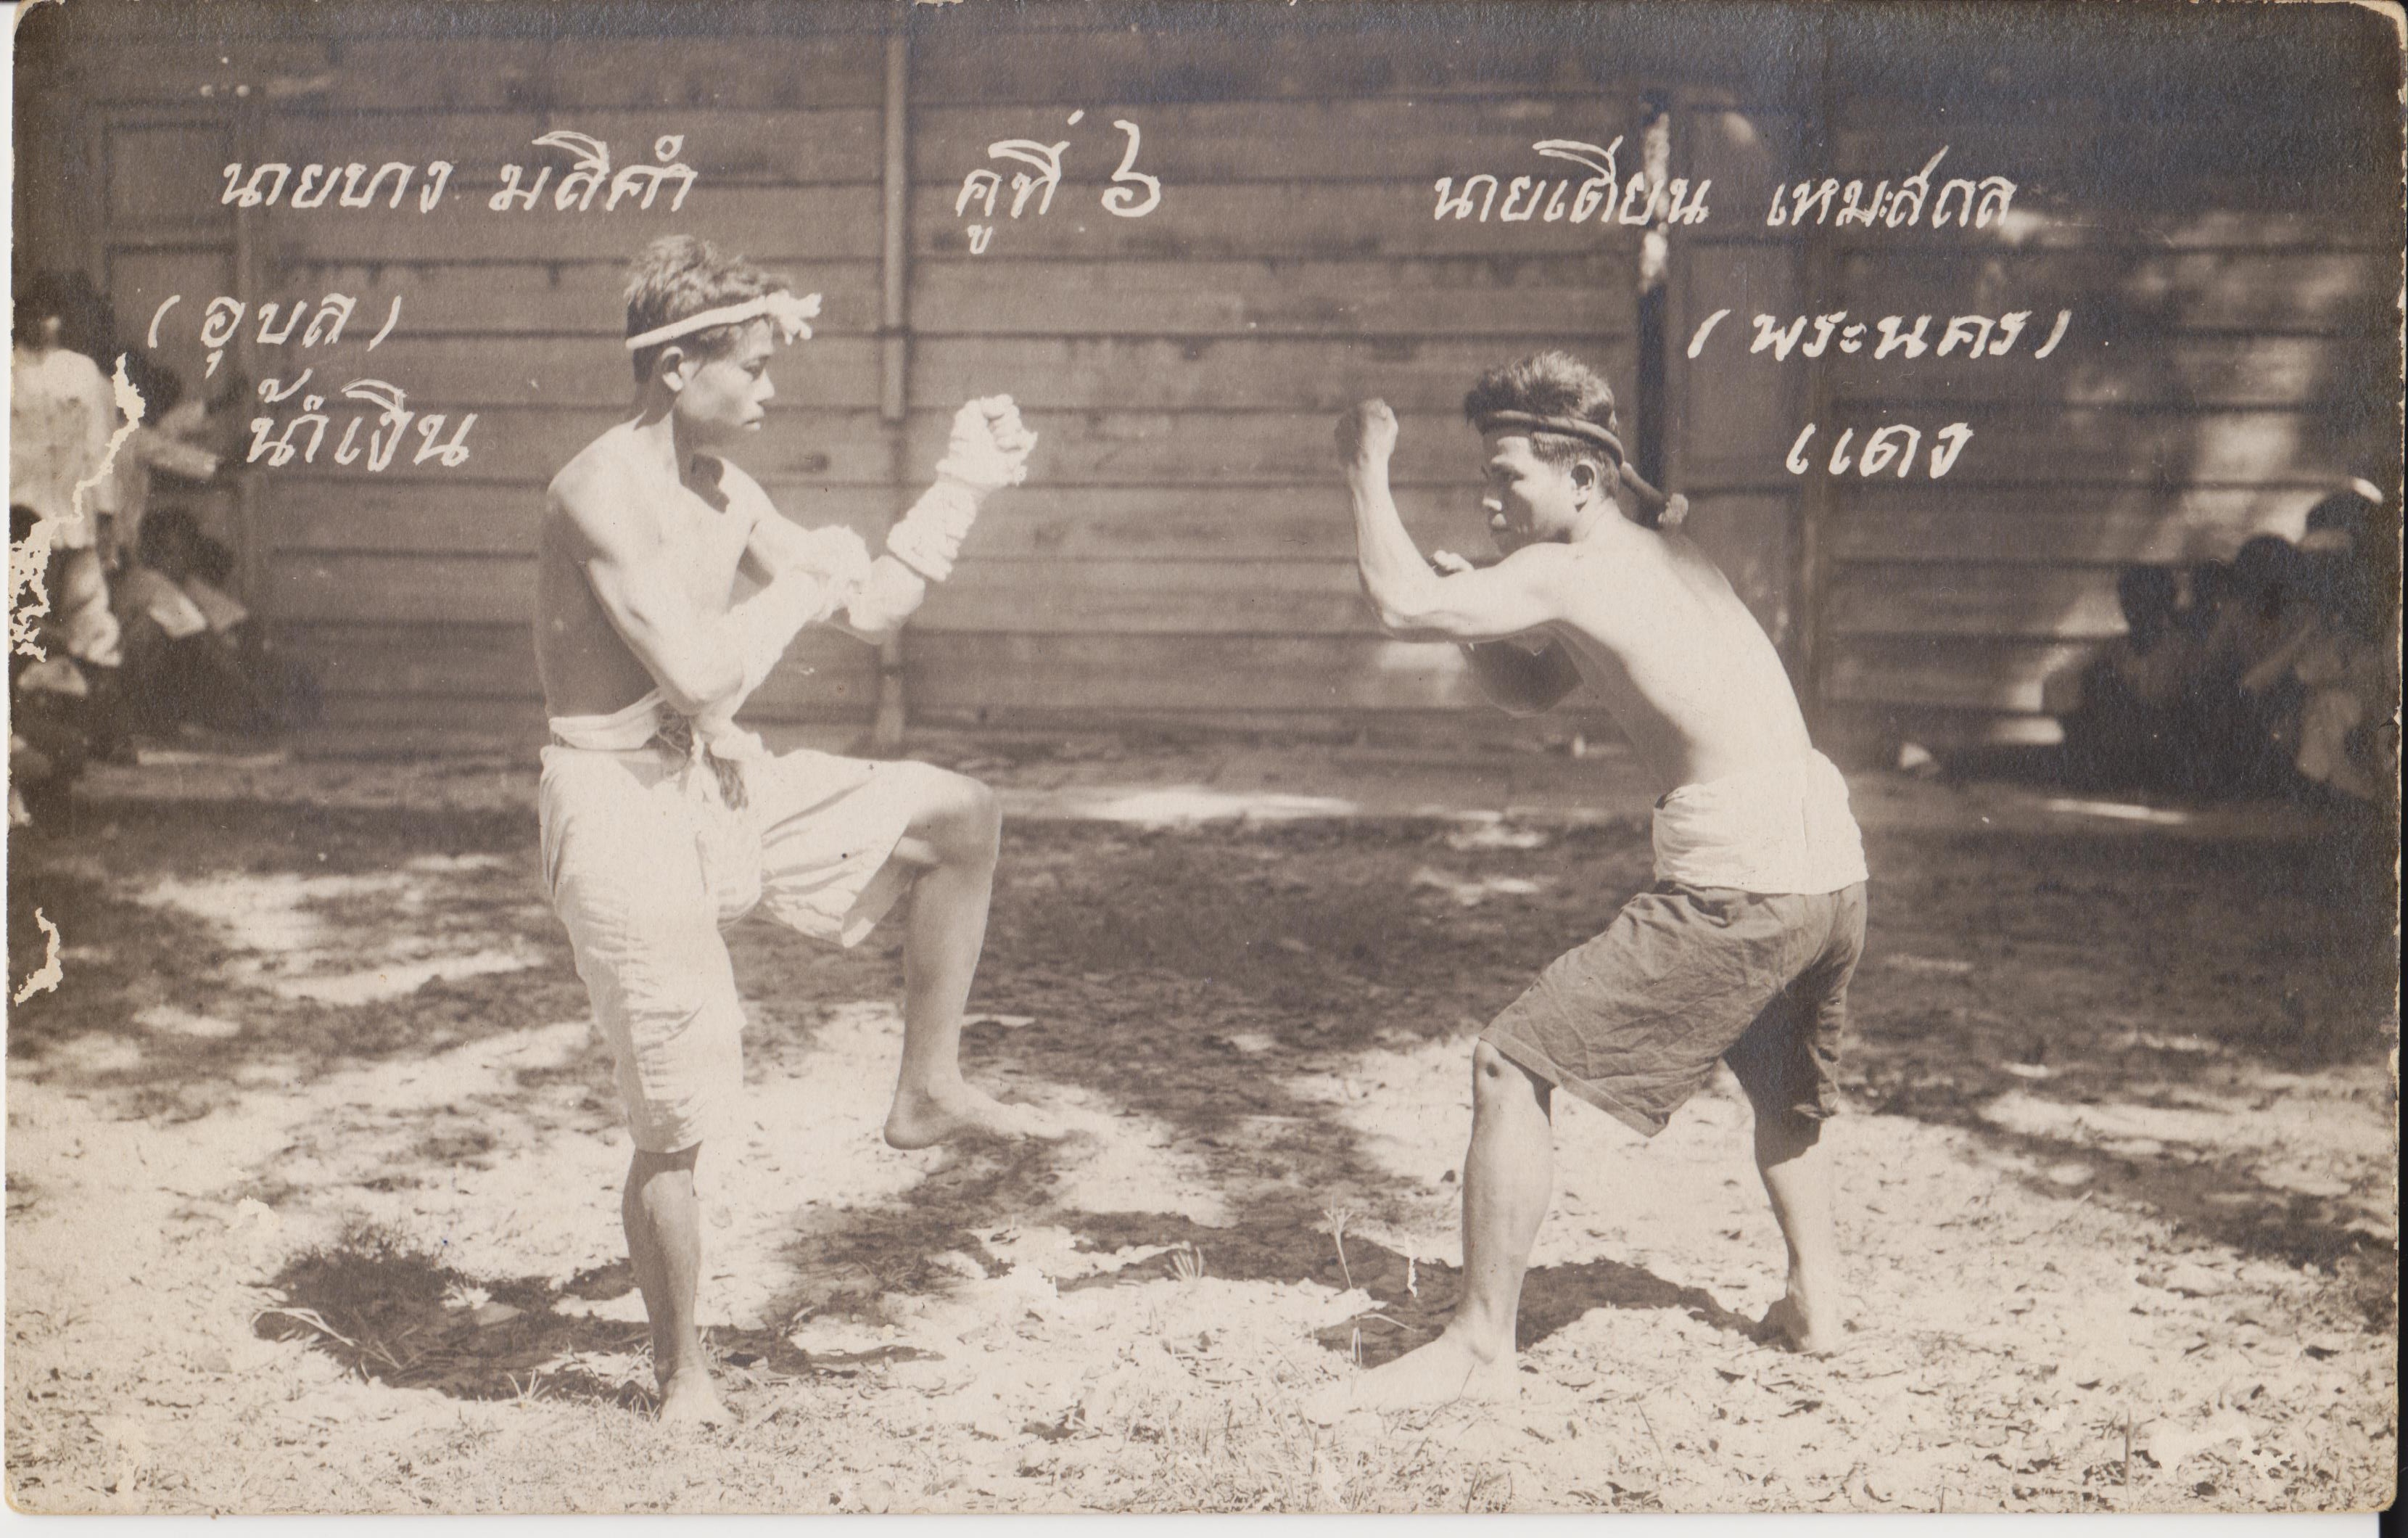 นายยาง มลีคำ
คู่ที่ ๖
นายเตียน เหมะสถล
(อุบล)
(พระนคร)
น้ำเงิน
แดง